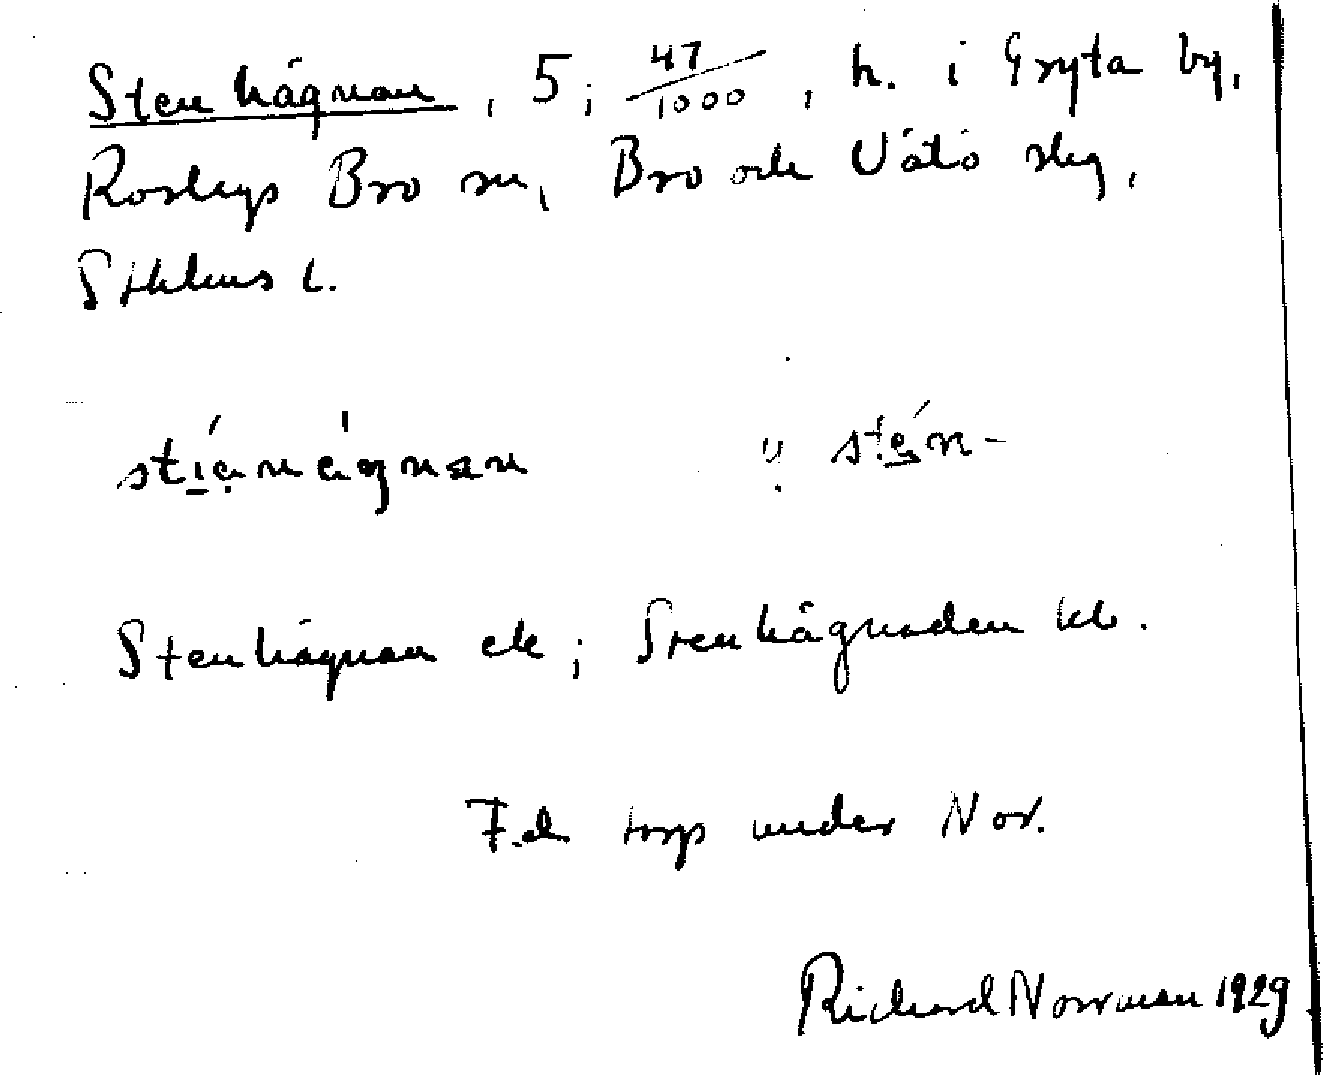 Stenhägnan, 5; 47/1000, h. i Gryta by,
Roslags Bro sn, Bro och Vätö skg,
Sthlms l.
stíęnägnan " stén-
Stenhägnan ek; Stenhägnaden kb.
F.d. torp under Nor.
Richard Norrman 1929